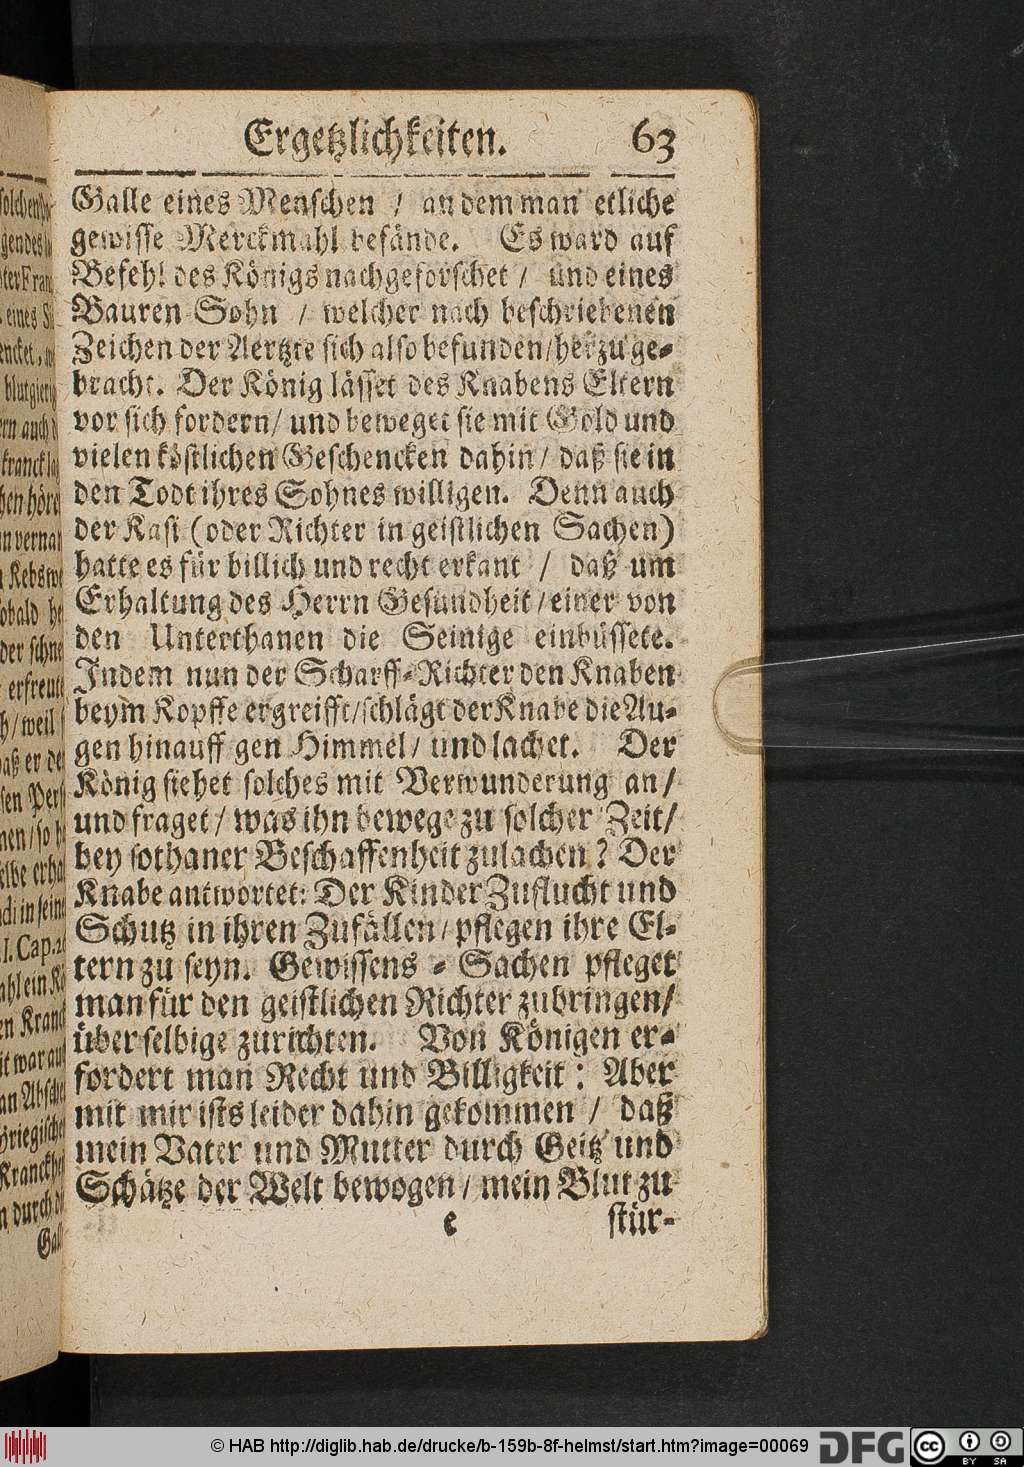 Ergetzlichkeiten. 63
Galle eines Menschen / an dem man etliche
gewisse Merckmahl befände. Es ward auf
Befehl des Königs nachgeforschet / und eines
Bauren Sohn / welcher nach beschriebenen
Zeichen der Aertzte sich also befunden/herzu ge-
bracht. Der König lässet des Knabens Eltern
vor sich fordern/ und beweget sie mit Gold und
vielen köstlichen Geschencken dahin/ daß sie in
den Todt ihres Sohnes willigen. Denn auch
der Kasi (oder Richter in geistlichen Sachen)
hatte es für billich und recht erkant / daß um
Erhaltung des Herrn Gesundheit/einer von
den Unterthanen die Seinige einbüssete.
Indem nun der Scharff-Richter den Knaben
beym Kopffe ergreifft/schlägt der Knabe die Au-
gen hinauff gen Himmel/ und lachet. Der
König siehet solches mit Verwunderung an/
und fraget/ was ihn bewege zu solcher Zeit/
bey sothaner Beschaffenheit zulachen? Der
Knabe antwortet: Der Kinder Zuflucht und
Schutz in ihren Zufällen/ pflegen ihre El-
tern zu seyn. Gewissens - Sachen pfleget
man für den geistlichen Richter zubringen/
über selbige zurichten. Von Königen er-
fordert man Recht und Billigkeit: Aber
mit mir ists leider dahin gekommen / daß
mein Vater und Mutter durch Geitz und
Schätze der Welt bewogen / mein Blut zu
e stür-
© HAB http://diglib.hab.de/drucke/b-159b-8f-helmst/start.htm?image=00069
DFG
cc BY SA